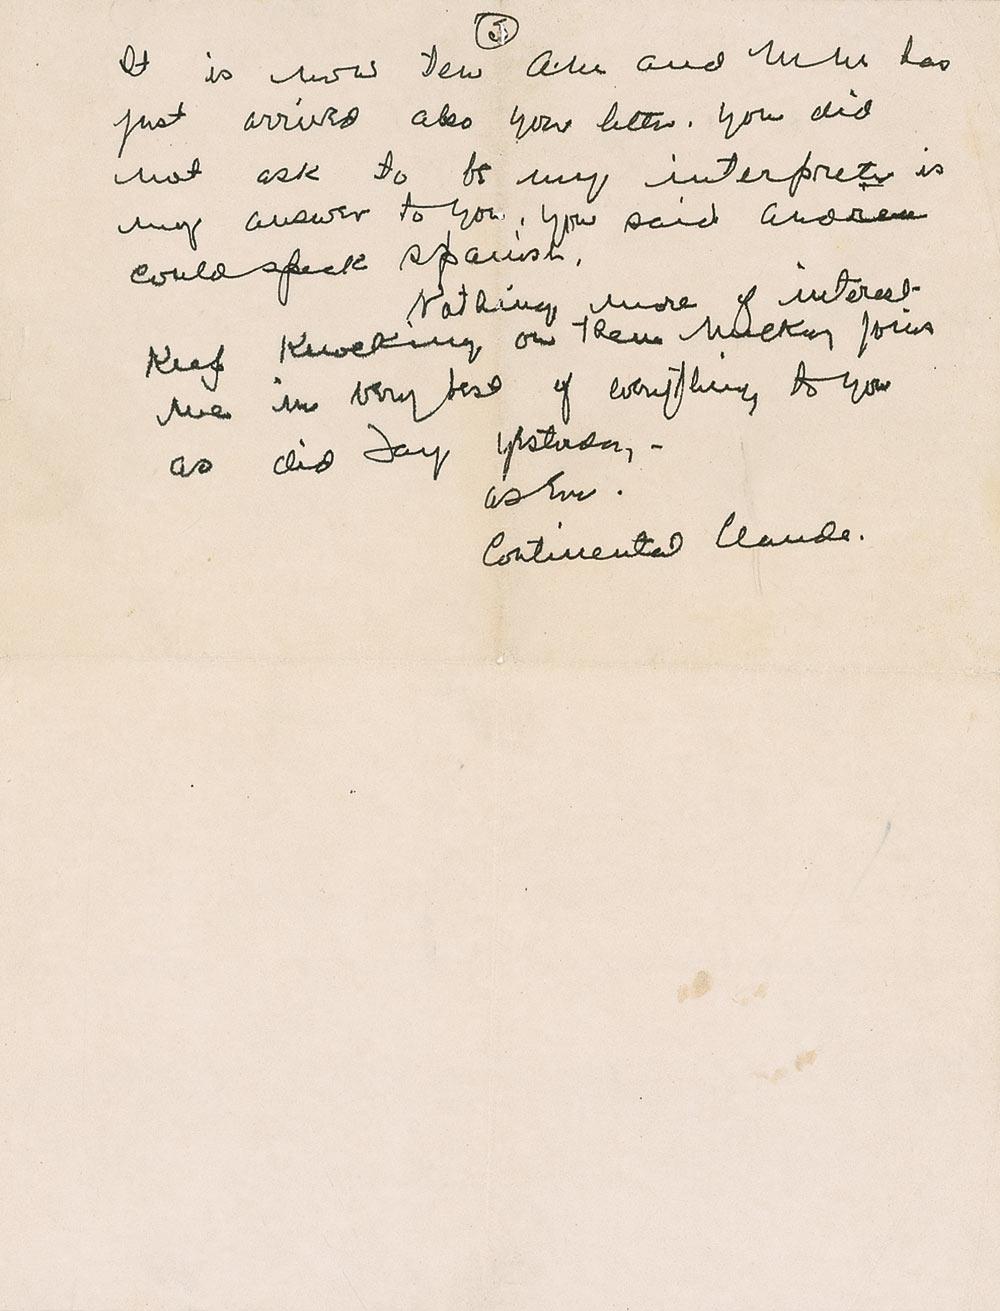 5
It is now ten A.M. and M.M. has
just arrived also your letter. You did
not ask to be my interpreter is
my answer to you. You said Andrew
could speak Spanish.
Nothing more of interest
Keep Knocking on them Mackay joins
me in very best of everything to you
as did Jay yesterday, -
as Ever.
Continental Claude.